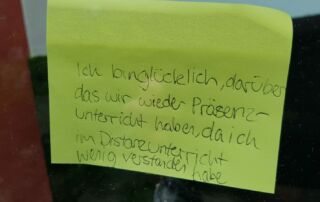 Ich bin glücklich, darüber
das wir wieder Präsenz-
unterricht haben, da ich
im Distanzunterricht
wenig verstanden habe